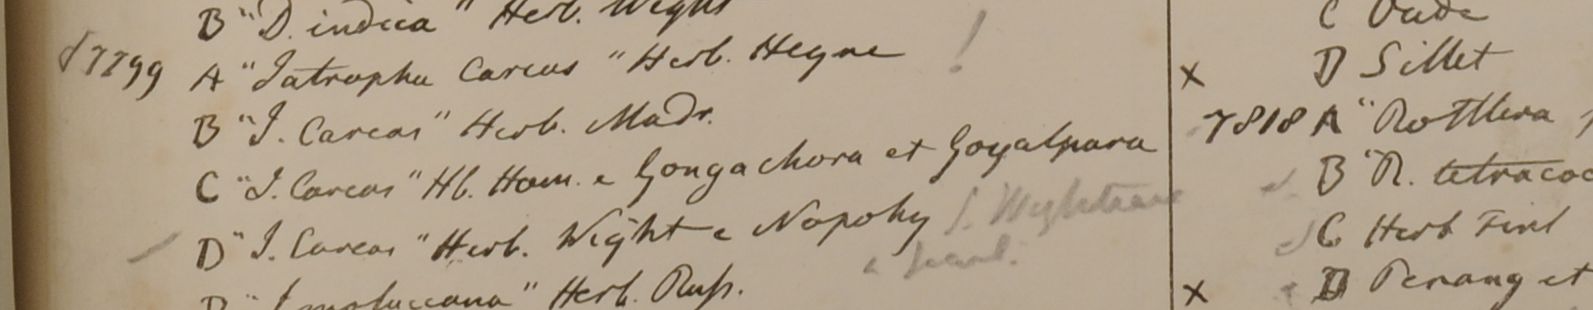 B "D. indica" Herb. Wight
7799 A "Jatropha Carcas" Herb. Heyne !
B "J. Carcas" Herb. Madr.
C "J. Carcas" Hb. Ham. e Gongachora et Goyalpara
D "J. Carcas" Herb. Wight e Nopoky J. Wightiana
"J. moluccana" Herb. Russ.
C Oude
x D Sillet
7818 A "Rottlera
B "R. tetracoc
C Herb Finl
x D Penang et